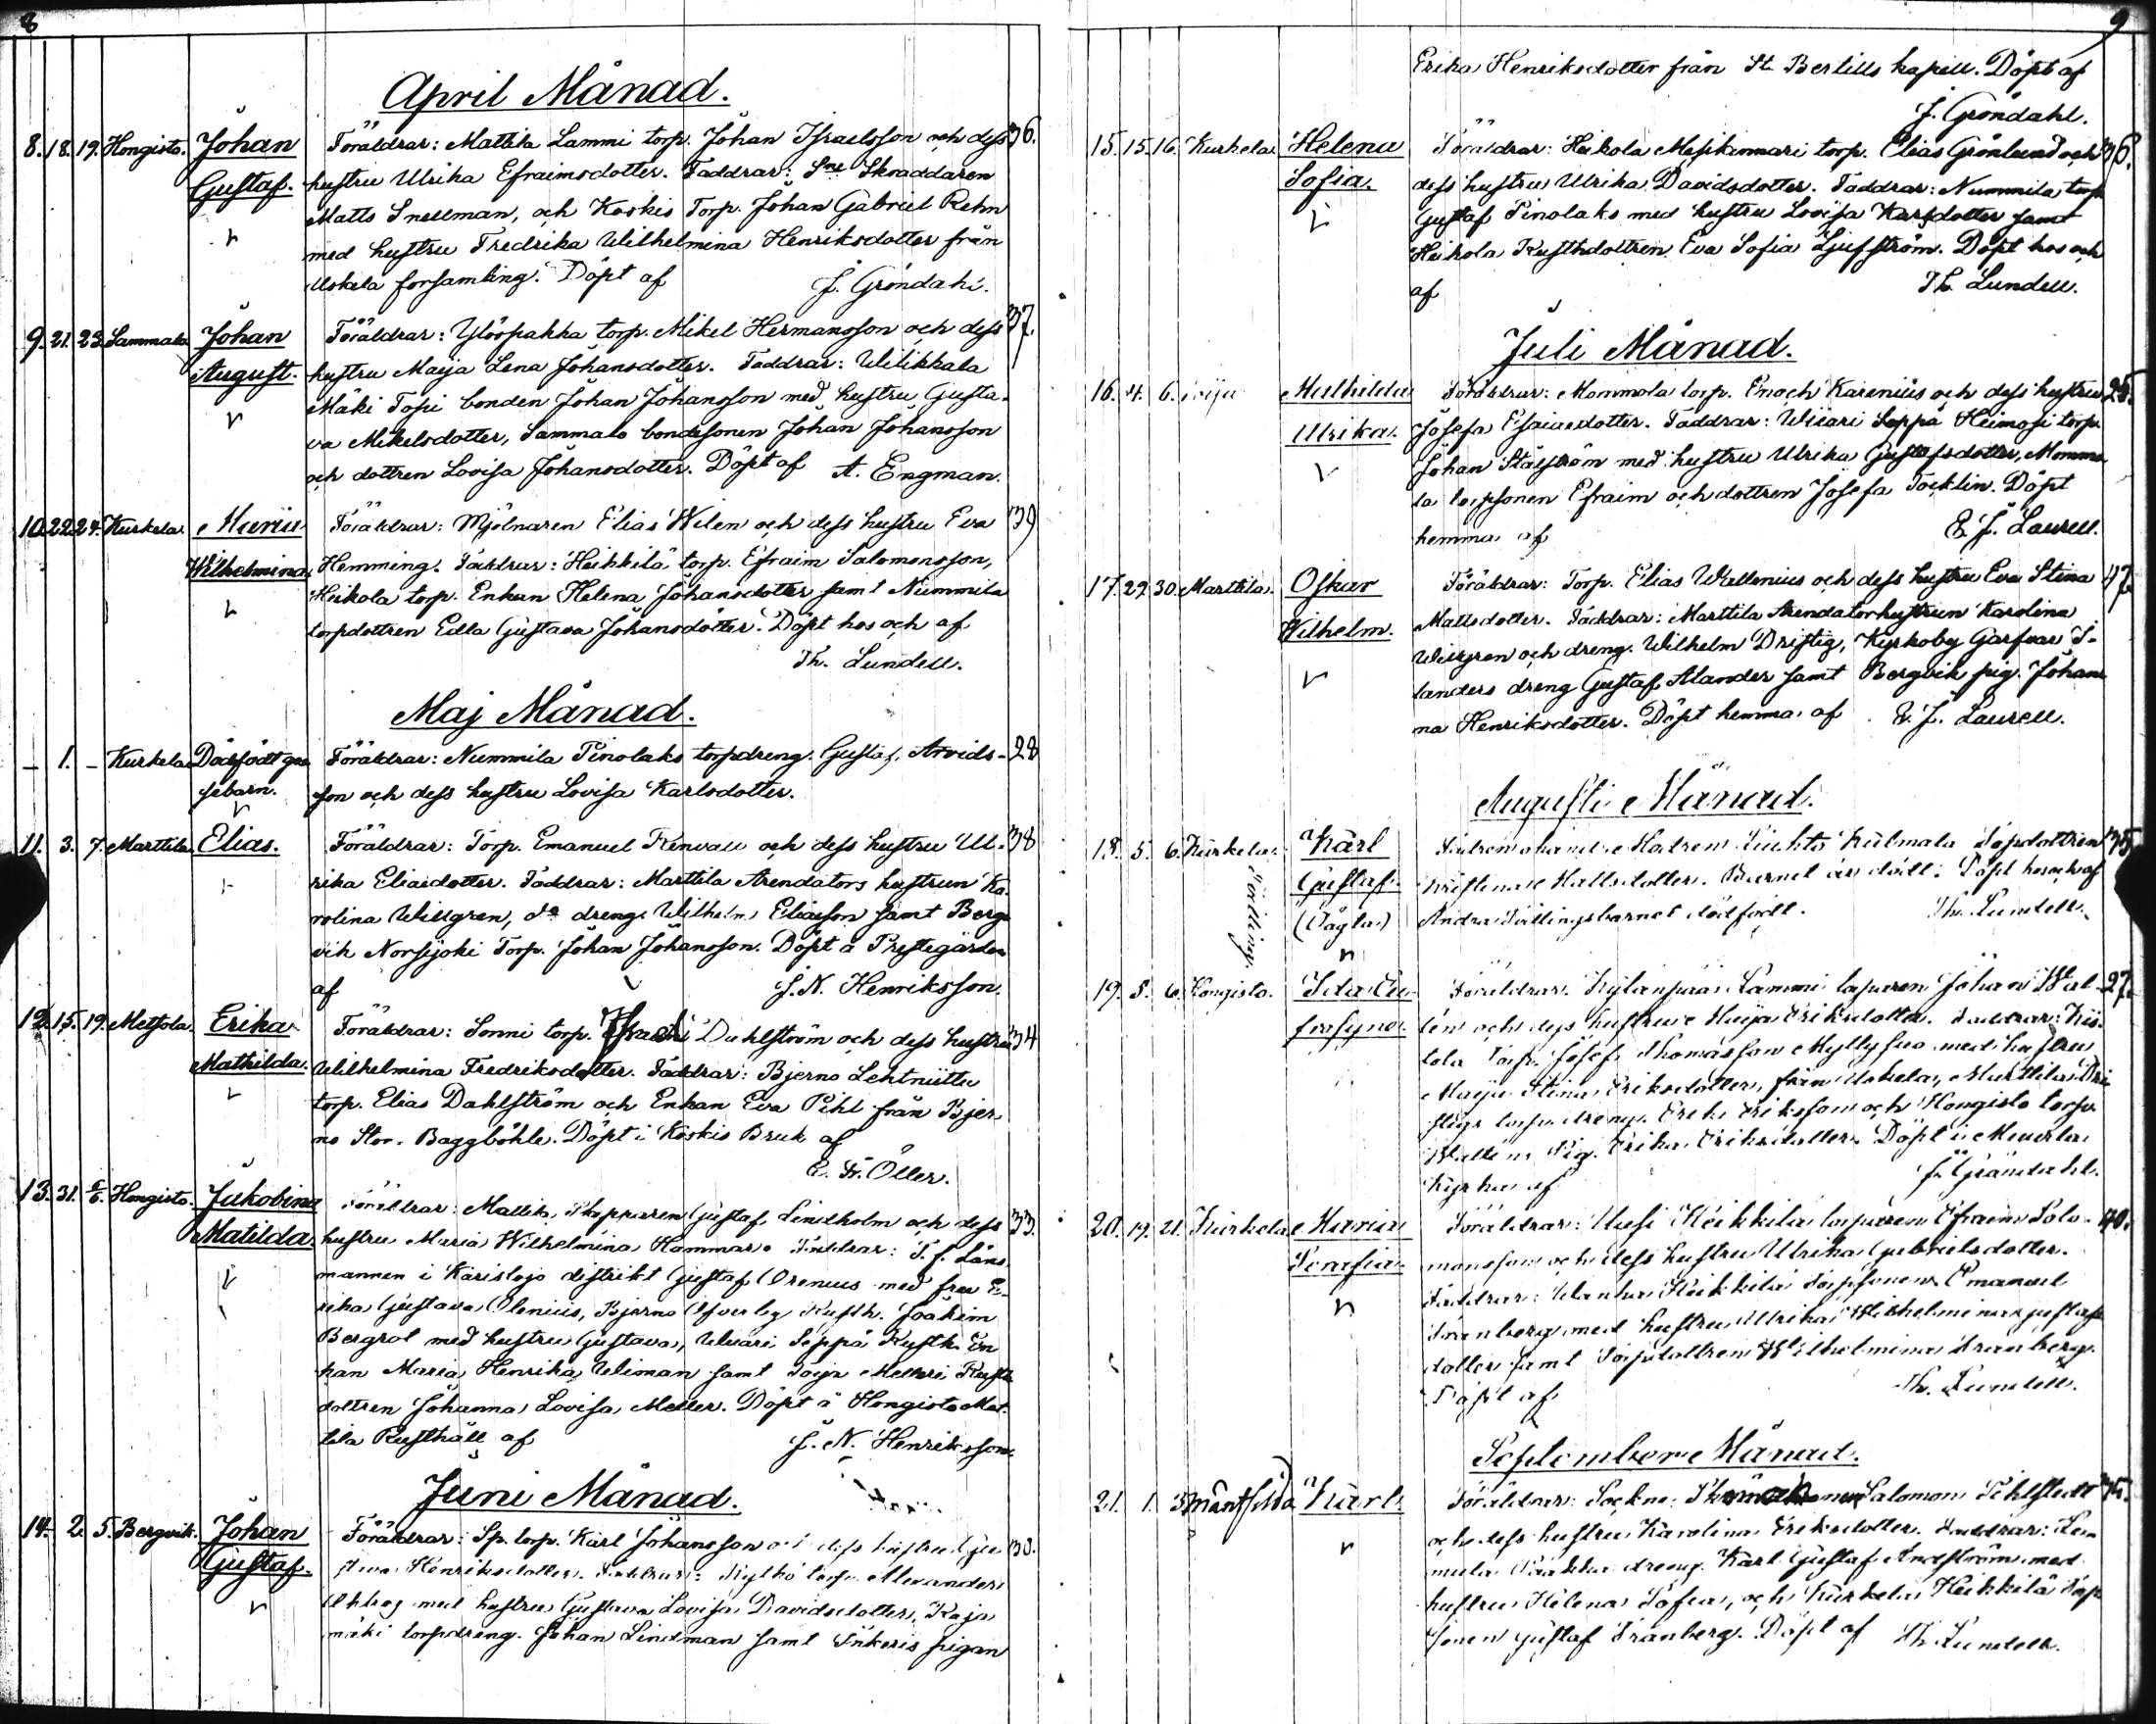 8
April Månad.
8. 18. 19. Hongisto. Johan Föräldrar: Mattila Lammi torp. Johan Israelsson och dess 36.
Gustaf. hustru Ulrika Efraimsdotter. Faddrar: Sne Skraddaren
Matts Snellman, och Koskis Torp. Johan Gabriel Rehn
med hustru Fredrika Wilhelmina Henriksdotter från
Uskela församling. Döpt af J. Gröndahl.
9. 21. 23. Sammalo Johan Föräldrar: Ylöspakka torp. Mikel Hermansson och dess 37.
August. hustru Maija Lena Johansdotter. Faddrar: Wilikkala
Mäki Topi bonden Johan Johansson med hustru Gusta-
va Mikelsdotter, Sammalo bondesonen Johan Johansson
och dottren Lovisa Johansdotter. Döpt af A. Engman.
10. 22. 24. Kurkela. Maria Föräldrar: Mjölnaren Elias Wilen och dess hustru Eva 39
Wilhelmina Hemming. Faddrar: Heikkilä torp. Efraim Salomonsson,
Heikola torp. Enkan Helena Johansdotter samt Nummila
torpdottren Eilla Gustava Johansdotter. Döpt hos och af
Th. Lundell.
Maj Månad.
– 1. – Kurkela Dödfödt gos Föräldrar: Nummila Pinolaks torpdreng. Gustaf Arvids- 28
sebarn. son och dess hustru Lovisa Karlsdotter.
11. 3. 7. Marttila Elias. Föräldrar: Torp. Emanuel Renvall och dess hustru Ul- 38
rika Eliasdotter. Faddrar: Marttila Arendators hustrun Ka-
rolina Willgren, do dreng. Wilhelm Eliasson samt Berg
vik Norsjoki Torp. Johan Johansson. Döpt å Prestegården
af J. N. Henriksson.
12. 15. 19. Metsola. Erika Föräldrar: Sonni torp. Dahlström och dess hustru 34
Mathilda. Wilhelmina Fredriksdotter. Faddrar: Bjerno Lehtniittu
torp. Elias Dahlström och Enkan Eva Pihl från Bjer
no Stor. Baggböhle. Döpt i Koskis Bruk af
E. Fr. Öller.
13. 31. 6/6. Hongisto. Jakobina Föräldrar: Mattila Skepparen Gustaf Lindholm och dess 33.
Matilda. hustru Maria Wilhelmina Hammar. Faddrar: T. f. Läns
mannen i Karislojo distrikt Gustaf Orenius med fru E-
rika Gustava Olenius, Bjerno Ofverby Rusth. Joakim
Bergrot med hustru Gustava, Seppä Rusth. En
kan Maria Henrika Wiman samt Toija Melleri Rusth
dottren Johanna Lovisa Meller. Döpt å Hongisto Mat-
tila Rusthåll af J. N. Henriksson.
Juni Månad.
14. 2. 5. Bergvik. Johan Föräldrar: Sp. torp. Karl Johansson och dess hustru Gu 30.
Gustaf. stava Henriksdotter. Faddrar: torp. Alexander
med hustru Gustava Lovisa Davidsdotter, Kaja
mäki torpdreng. Johan Lindman samt Inkeris pigan
9
Erika Henriksdotter från St. Bertills kapell. Döpt af
J. Gröndahl.
15. 15. 16. Kurkela. Helena Föräldrar: Heikola Mesikammari torp. Elias Grönlund och 36.
Sofia. dess hustru Ulrika Davidsdotter. Faddrar: Nummila torp
Gustaf Pinolaks med hustru Lovisa Karlsdotter samt
Heikola Rusthdottren Eva Sofia Ljufström. Döpt hos och
af Th. Lundell.
Juli Månad.
16. 4. 6. Toija Mathilda Föräldrar: Mommola torp. Enoch Karenius och dess hustru 25.
Ulrika. Josefa Esaiasdotter. Faddrar: Wiiari Seppä Heimosi torp.
Johan Stålström med hustru Ulrika Gustafsdotter, Mommo
la torpsonen Efraim och dottren Josefa Töcklin. Döpt
hemma af E. J. Laurell.
17. 29. 30. Marttila. Oskar Föräldrar: Torp. Elias Wallenius och dess hustru Eva Stina 47
Wilhelm. Mattsdotter. Faddrar: Marttila Arendatorhustrun Karolina
Willgren och dreng. Wilhelm Driftig, Kyrkoby Garfvar S-
landers dreng Gustaf Alander samt Bergvik pig. Johan
na Henriksdotter. Döpt hemma af E. J. Laurell.
Augusti Månad.
18. 5. 6. Kurkela. Karl Kulmala Torpdottren 35
Gustaf Kristina Mattsdotter. Barnet är dödt. Döpt hos och af
(Oägta) Andra Tvillingsbarnet dödfödt. Th. Lundell.
Tvilling.
19. 5. 6. Hongisto. Ida Eu- Föräldrar: Kylänpää Lammi torparen Johan Wal- 27.
frosyna. len och dess hustru Maija Eriksdotter. Faddrar: Kis-
kola Torp. Josef Thomasson Myllysuo med hustru
Maija Stina Eriksdotter, från Uskela, Marttila Dri
ftigs torpdreng. Erik Eriksson och Hongisto torp.
Walléns Pig. Erika Eriksdotter. Döpt i Muurla
Kyrka af J. Gröndahl.
20. 19. 21. Kurkela Maria Föräldrar: Uusi Heikkilä torparen Efraim Salo- 40.
Serafia. monsson och dess hustru Ulrika Gabrielsdotter.
Faddrar: Wanha Heikkilä Torpsonen Emanuel
Franberg med hustru Ulrika Wilhelmina Gustafs
dotter samt Torpdottren Wilhelmina Franberg.
Döpt af Th. Lundell.
September Månad.
21. 1. 3. Karl Föräldrar: Sockne Salomon 35.
och dess hustru Karolina Eriksdotter. Faddrar:
dreng. Karl Gustaf med
hustru Helena Sofia, och Kurkela Heikkilä Torp
sonen Gustaf Franberg. Döpt af Th. Lundell.